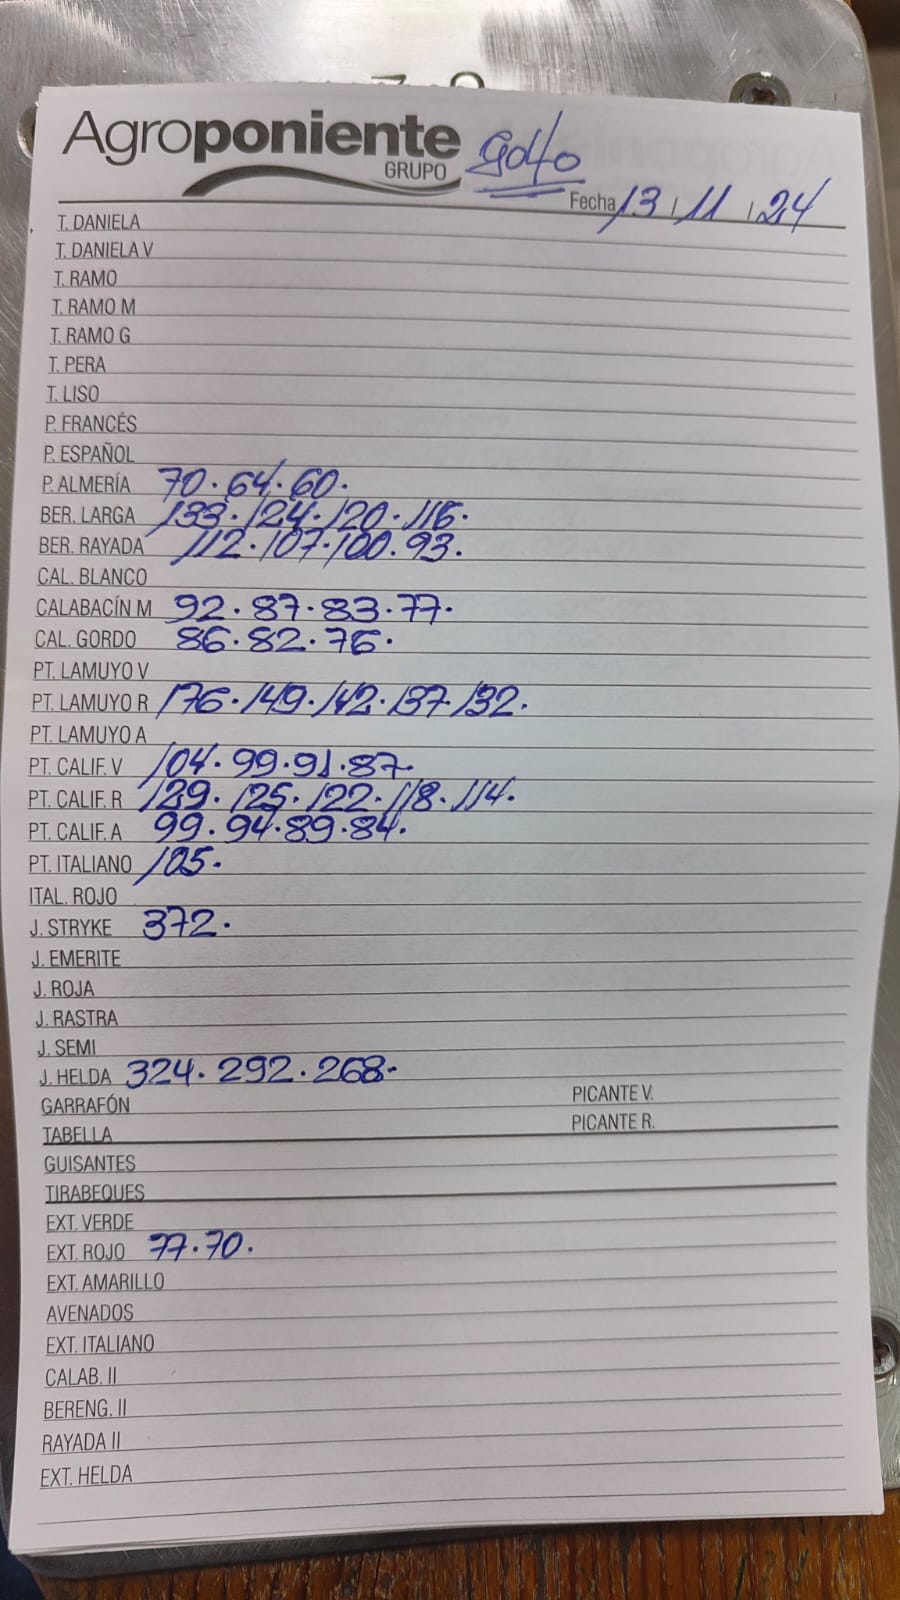 Agroponiente
GRUPO
Golfo
Fecha 13 / 11 / 24
T. DANIELA
T. DANIELA V
T. RAMO
T. RAMO M
T. RAMO G
T. PERA
T. LISO
P. FRANCÉS
P. ESPAÑOL
P. ALMERÍA 70. 64. 60.
BER. LARGA 133. 124. 120. 116.
BER. RAYADA 112. 107. 100. 93.
CAL. BLANCO
CALABACÍN M 92. 87. 83. 77.
CAL. GORDO 86. 82. 76.
PT. LAMUYO V
PT. LAMUYO R 176. 149. 142. 137. 132.
PT. LAMUYO A
PT. CALIF. V 104. 99. 91. 87.
PT. CALIF. R 129. 125. 122. 118. 114.
PT. CALIF. A 99. 94. 89. 84.
PT. ITALIANO 105.
ITAL. ROJO
J. STRYKE 372.
J. EMERITE
J. ROJA
J. RASTRA
J. SEMI
J. HELDA 324. 292. 268.
GARRAFÓN PICANTE V.
TABELLA PICANTE R.
GUISANTES
TIRABEQUES
EXT. VERDE
EXT. ROJO 77. 70.
EXT. AMARILLO
AVENADOS
EXT. ITALIANO
CALAB. II
BERENG. II
RAYADA II
EXT. HELDA